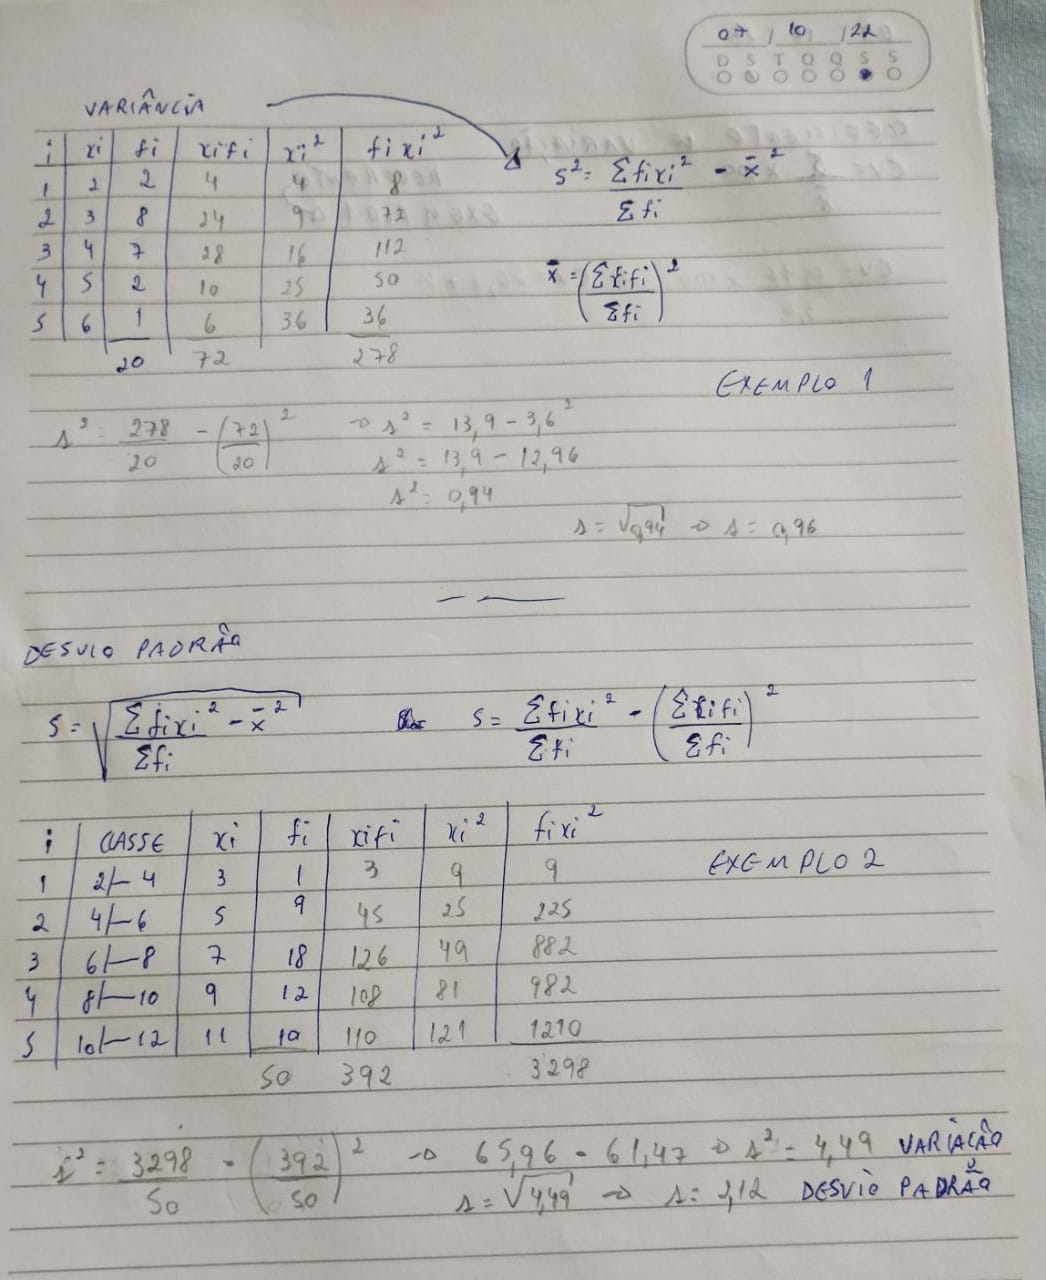 07 / 10 / 22
D S T Q Q S S
VARIÂNCIA
i xi fi xifi xi² fixi²
1 2 2 4 4 8
2 3 8 24 9 72
3 4 7 28 16 112
4 5 2 10 25 50
5 6 1 6 36 36
20 72 278
s² = Σfixi² / Σfi - x̄²
x̄ = (Σxifi / Σfi)²
EXEMPLO 1
s² = 278/20 - (72/20)² → s² = 13,9 - 3,6²
s² = 13,9 - 12,96
s² = 0,94
s = √0,94 → s = 0,96
DESVIO PADRÃO
s = √(Σfixi² - x̄² / Σfi) s = Σfixi² / Σfi - (Σxifi / Σfi)²
i CLASSE xi fi xifi xi² fixi²
EXEMPLO 2
1 2|—4 3 1 3 9 9
2 4|—6 5 9 45 25 225
3 6|—8 7 18 126 49 882
4 8|—10 9 12 108 81 982
5 10|—12 11 10 110 121 1210
50 392 3298
s² = 3298/50 - (392/50)² → 65,96 - 61,47 → s² = 4,49 VARIAÇÃO
s = √4,49 → s = 2,12 DESVIO PADRÃO